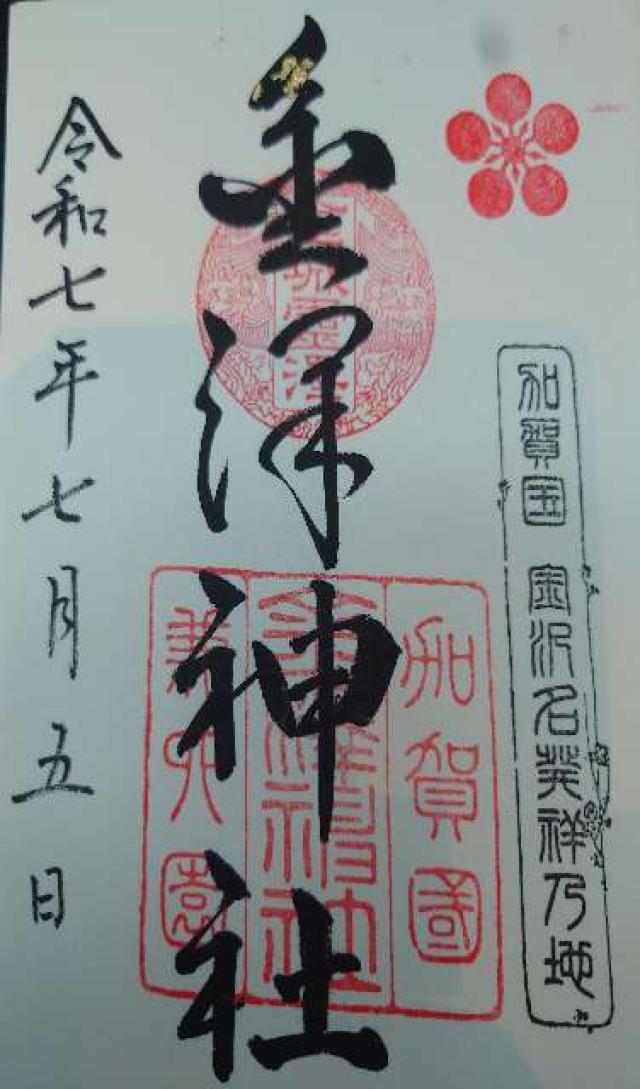 加賀国 金沢名発祥乃地
金澤神社
加賀國
金澤神社
兼六園
令和七年七月五日